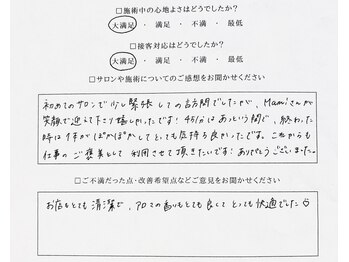 □施術中の心地よさはどうでしたか?
大満足 ・ 満足 ・ 不満 ・ 最低
□接客対応はどうでしたか?
大満足 ・ 満足 ・ 不満 ・ 最低
□サロンや施術についてのご感想をお聞かせください
初めてのサロンで少し緊張しての訪問でしたが、Mamiさんが
笑顔で迎えて下さり嬉しかったです!45分はあっという間で、終わった
時には すがぽかぽかしてとても気持ち良かったです。これからも
仕事のご褒美として利用させて頂きたいです!ありがとうございました。
□ご不満だった点・改善希望点などご意見をお聞かせください
お店もとても清潔で、アロマの香りもとても良くてとっても快適でした☺